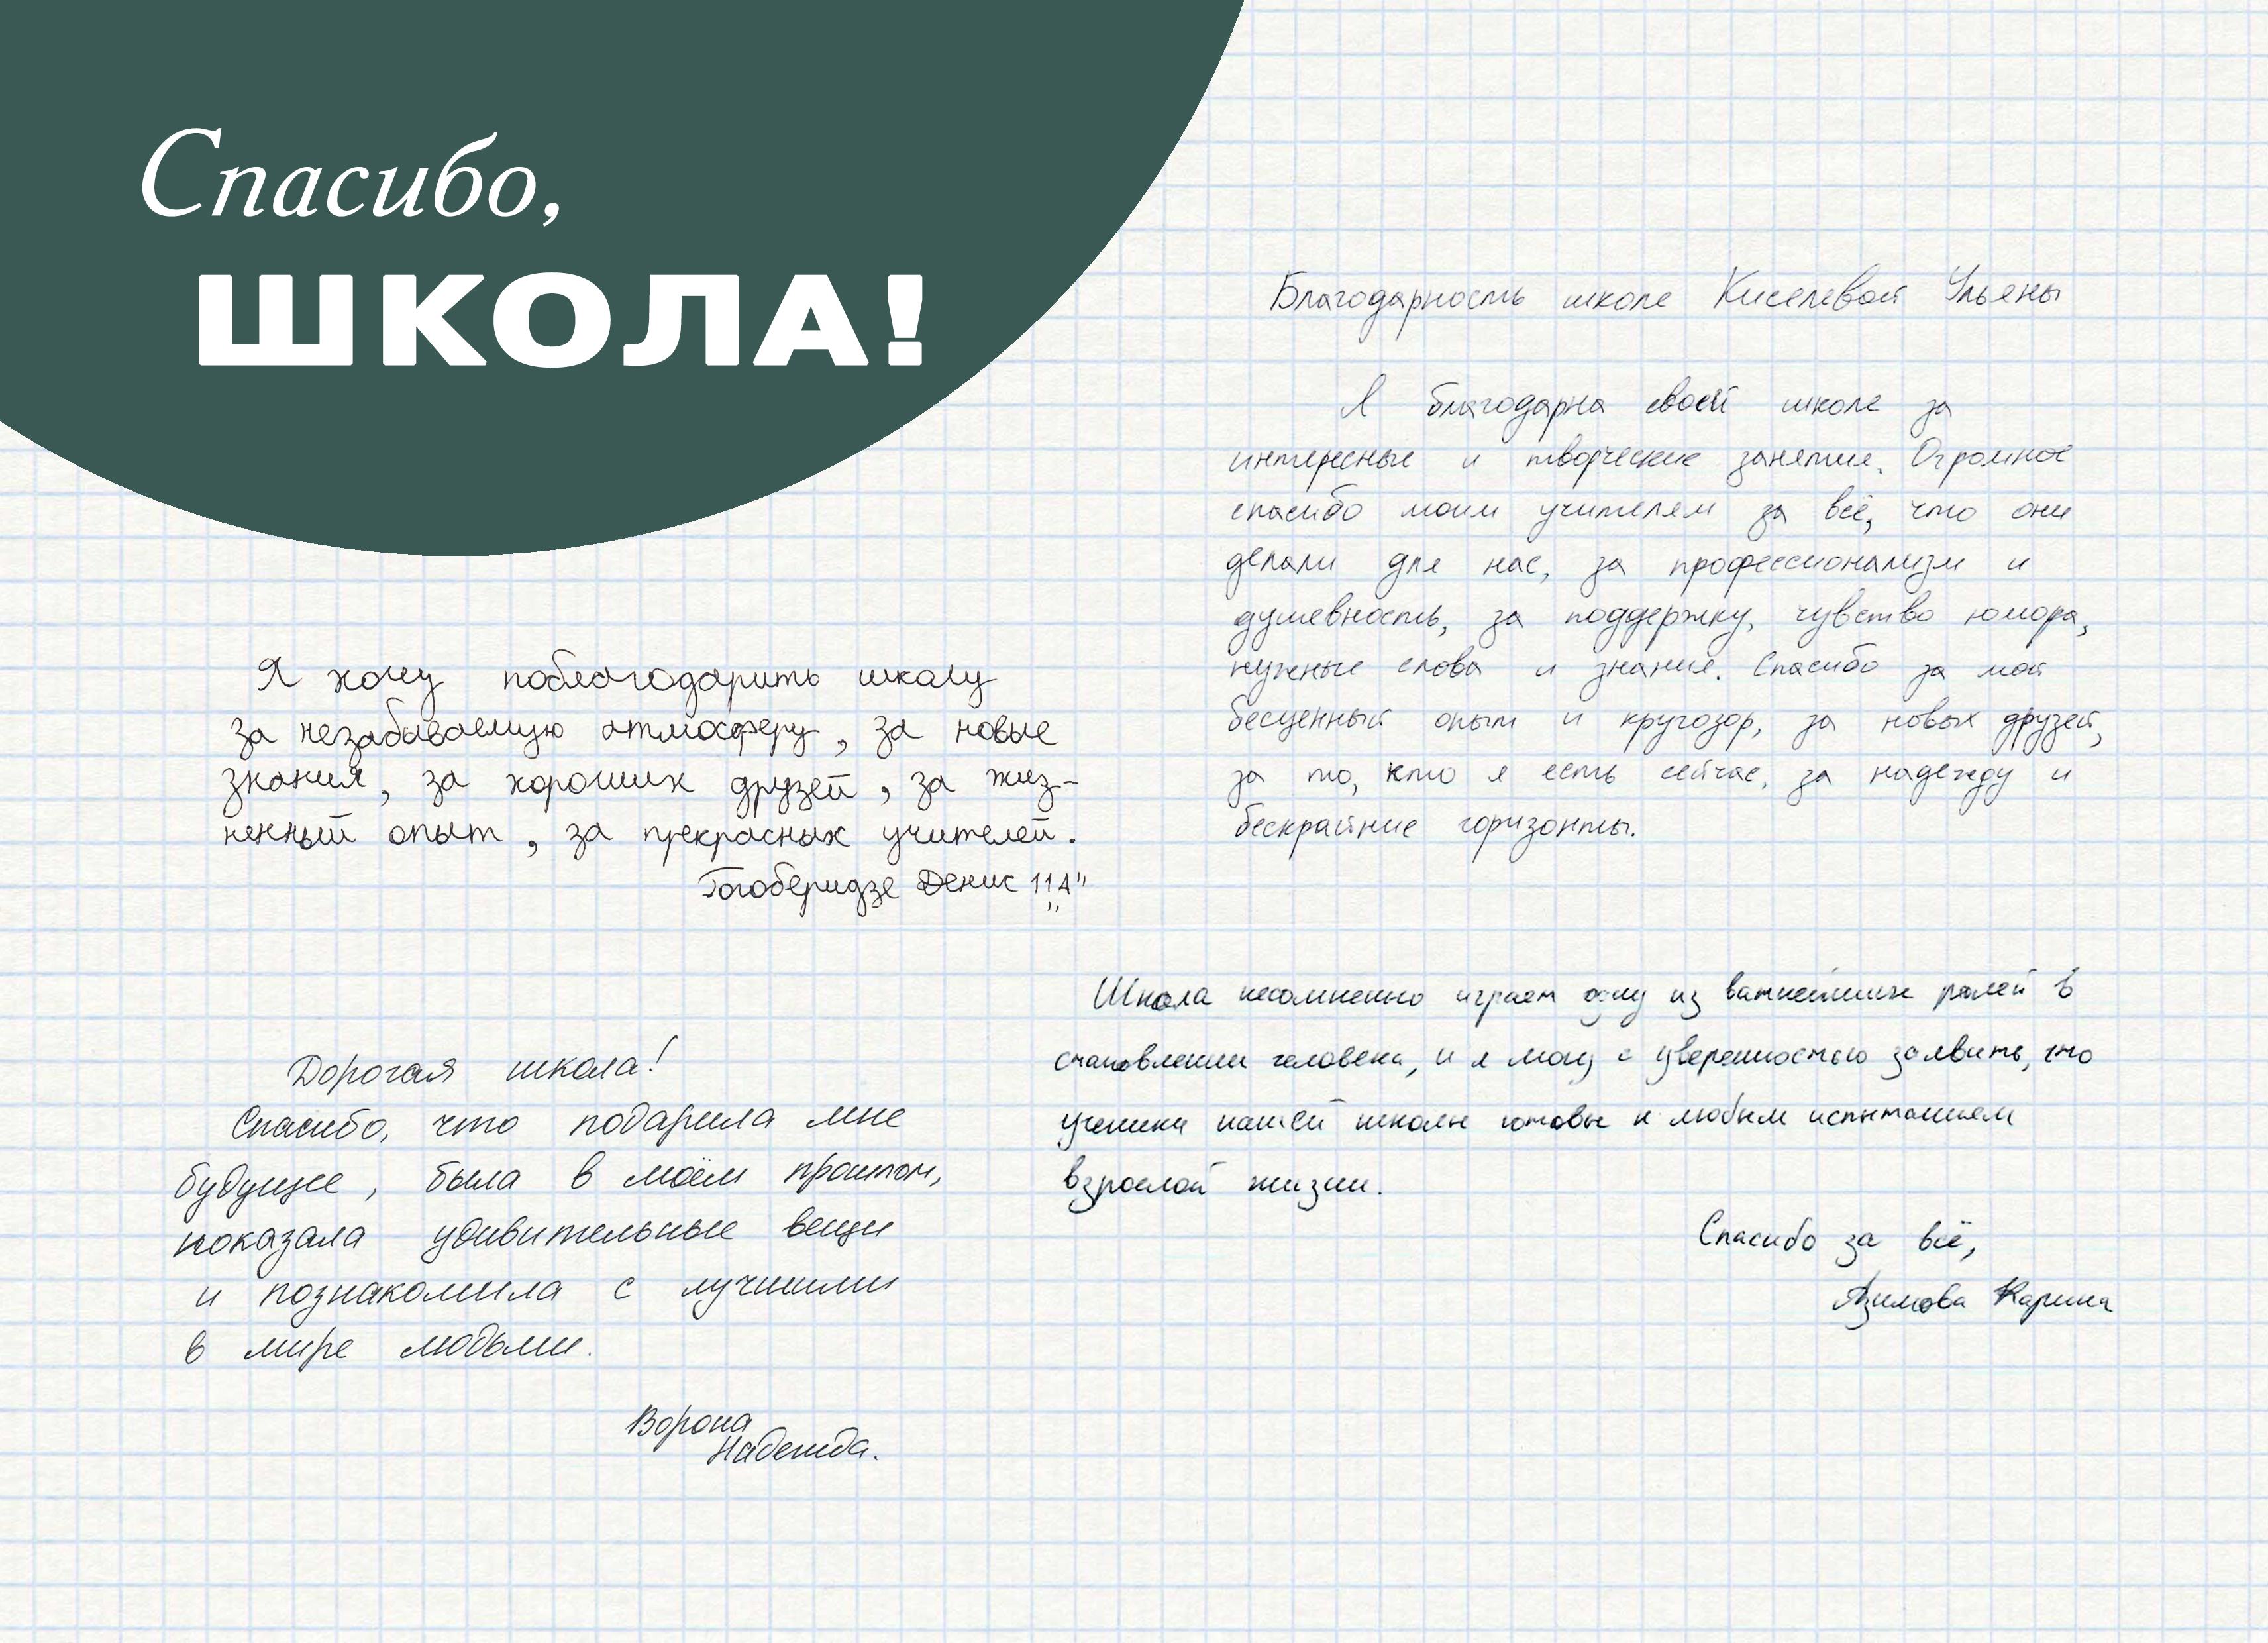 Спасибо,
ШКОЛА!
Я хочу поблагодарить школу
за незабываемую атмосферу, за новые
знания, за хороших друзей, за жиз-
ненный опыт, за прекрасных учителей.
Гогоберидзе Денис 11„А"
Дорогая школа!
Спасибо, что подарила мне
будущее, была в моём прошлом,
показала удивительные вещи
и познакомила с лучшими
в мире людьми.
Ворона
Надежда.
Благодарность школе Киселевой Ульяны
Я благодарна своей школе за
интересные и творческие занятия. Огромное
спасибо моим учителям за всё, что они
делали для нас, за профессионализм и
душевность, за поддержку, чувство юмора,
нужные слова и знания. Спасибо за мой
бесценный опыт и кругозор, за новых друзей,
за то, кто я есть сейчас, за надежду и
бескрайние горизонты.
Школа несомненно играет одну из важнейших ролей в
становлении человека, и я могу с уверенностью заявить, что
ученики нашей школы готовы к любым испытаниям
взрослой жизни.
Спасибо за всё,
Азимова Карина